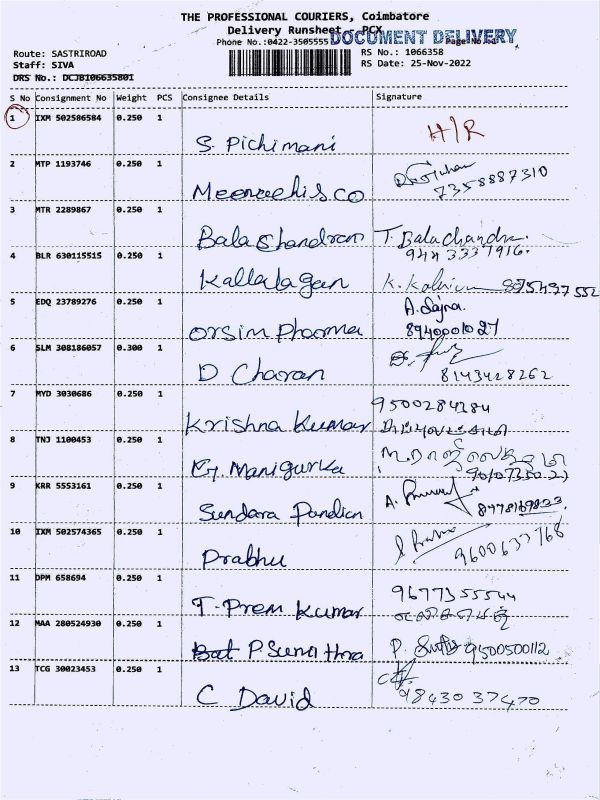 THE PROFESSIONAL COURIERS, Coimbatore
Delivery Runsheet PCX
Phone No.:0422-3505555 DOCUMENT DELIVERY
Route: SASTRIROAD RS No.: 1066358
Staff: SIVA RS Date: 25-Nov-2022
DRS No.: DCJB106635801
S No Consignment No Weight PCS Consignee Details Signature
1 IXM 502586584 0.250 1
S. Pichimani H/R
2 MTP 1193746 0.250 1
Meenachis co 7358887310
3 MTR 2289867 0.250 1
Bala Chandran T. Balachandra.
944 3337916.
4 BLR 630115515 0.250 1
Kallalagan K.
5 EDQ 23789276 0.250 1 A. Sajna.
Orsim Pharma 8940001027
6 SLM 308186057 0.300 1
D Charan 8143428262
7 MYD 3030686 0.250 1 9500284284
Krishna Kumar
8 TNJ 1100453 0.250 1
Manigurka
9 KRR 5553161 0.250 1
Sundara Pandian A.
10 IXM 502574365 0.250 1
Prabhu 9600637768
11 DPM 658694 0.250 1 9677355544
T. Prem Kumar
12 MAA 280524930 0.250 1
Bat P. Sumithra P. 9500500112
13 TCG 30023453 0.250 1
C David 9843037470